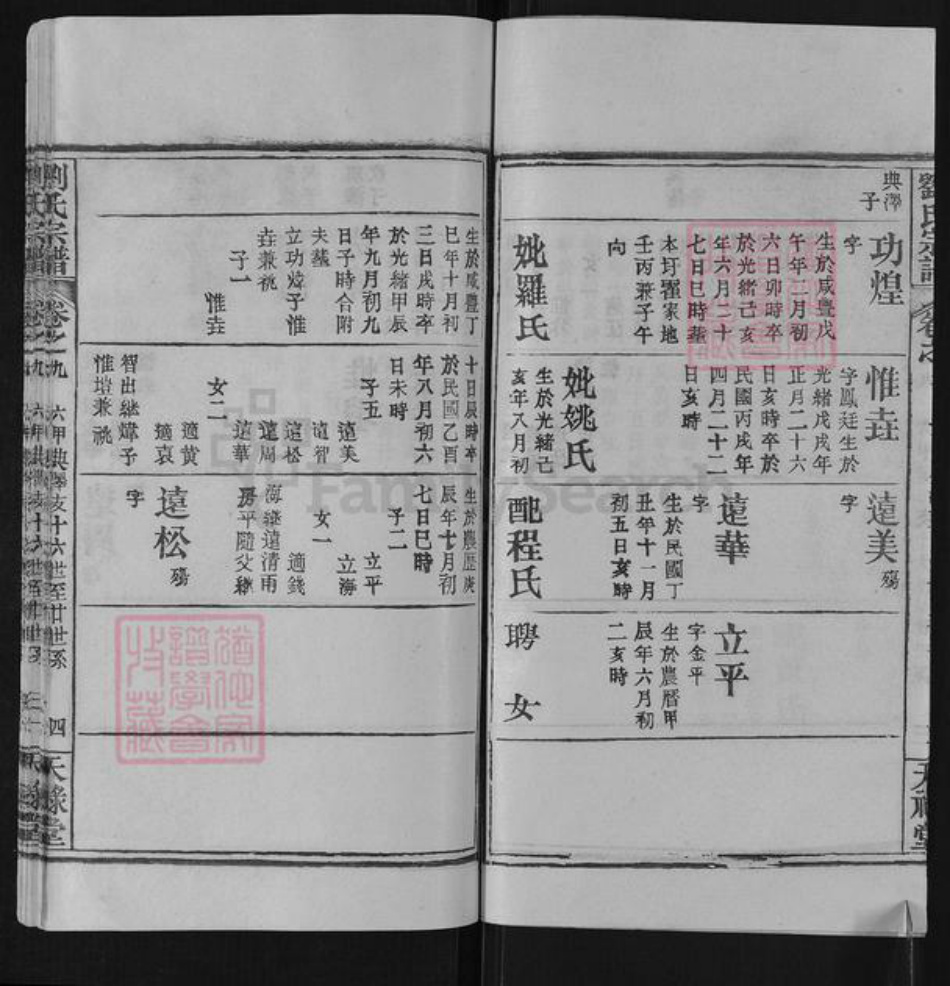 典澤子
功煌
字
生於咸豐戊
午年三月初
六日卯時卒
於光緒己亥
年六月二十
七日巳時葬
本圩瞿家地
壬丙兼子午
向
妣羅氏
惟垚
字鳳廷生於
光緒戊戌年
正月二十六
日亥時卒於
民國丙戌年
四月二十二
日亥時
妣姚氏
生於光緒己
亥年八月初
遠美 殤
字
遠華
字
生於民國丁
丑年十一月
初五日亥時
配程氏
立平
字金平
生於農曆甲
辰年六月初
二亥時
聘 女
生於咸豐丁
巳年十月初
三日戌時卒
於光緒甲辰
年九月初九
日子時合附
夫墓
立功煒子惟
垚兼祧
子一
惟垚
十日辰時卒
於民國乙酉
年八月初六
日未時
子五
遠美
遠智
遠松
遠周
遠華
女二
適黄
適袁
智出繼煒子
惟培兼祧
生於農歷庚
辰年七月初
七日巳時
子二
立平
立海
女一
適錢
海繼遠清雨
房平隨父繼
遠松 殤
字
劉氏宗譜
卷之九
六甲典澤亥十六世至廿世系
四
天祿堂